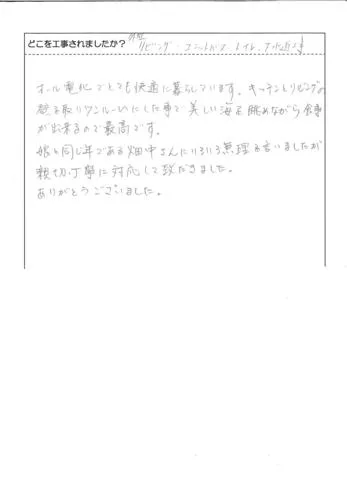 どこを工事されましたか？ リビング・ユニットバス・トイレ・
オール電化でとても快適に暮らしています。キッチンとリビングの
壁を取りワンルームにした事で美しい海を眺めながら食事
が出来るので最高です。
娘と同じ年である畑中さんにいろいろ無理を言いましたが
親切丁寧に対応して頂きました。
ありがとうございました。